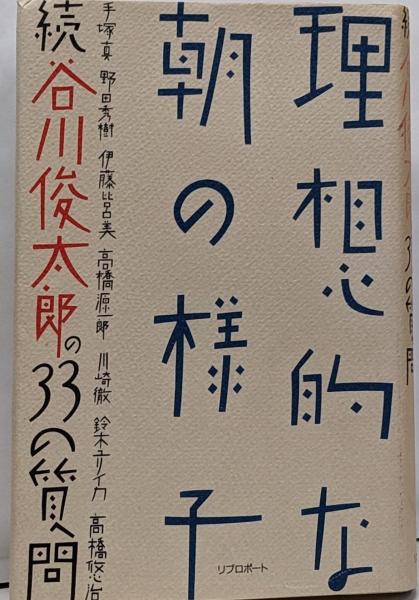 理想的な
朝の様子
手塚真 野田秀樹 伊藤比呂美 高橋源一郎 川崎徹 鈴木ユリイカ 高橋悠治
続 谷川俊太郎の33の質問
リブロポート
33の質問